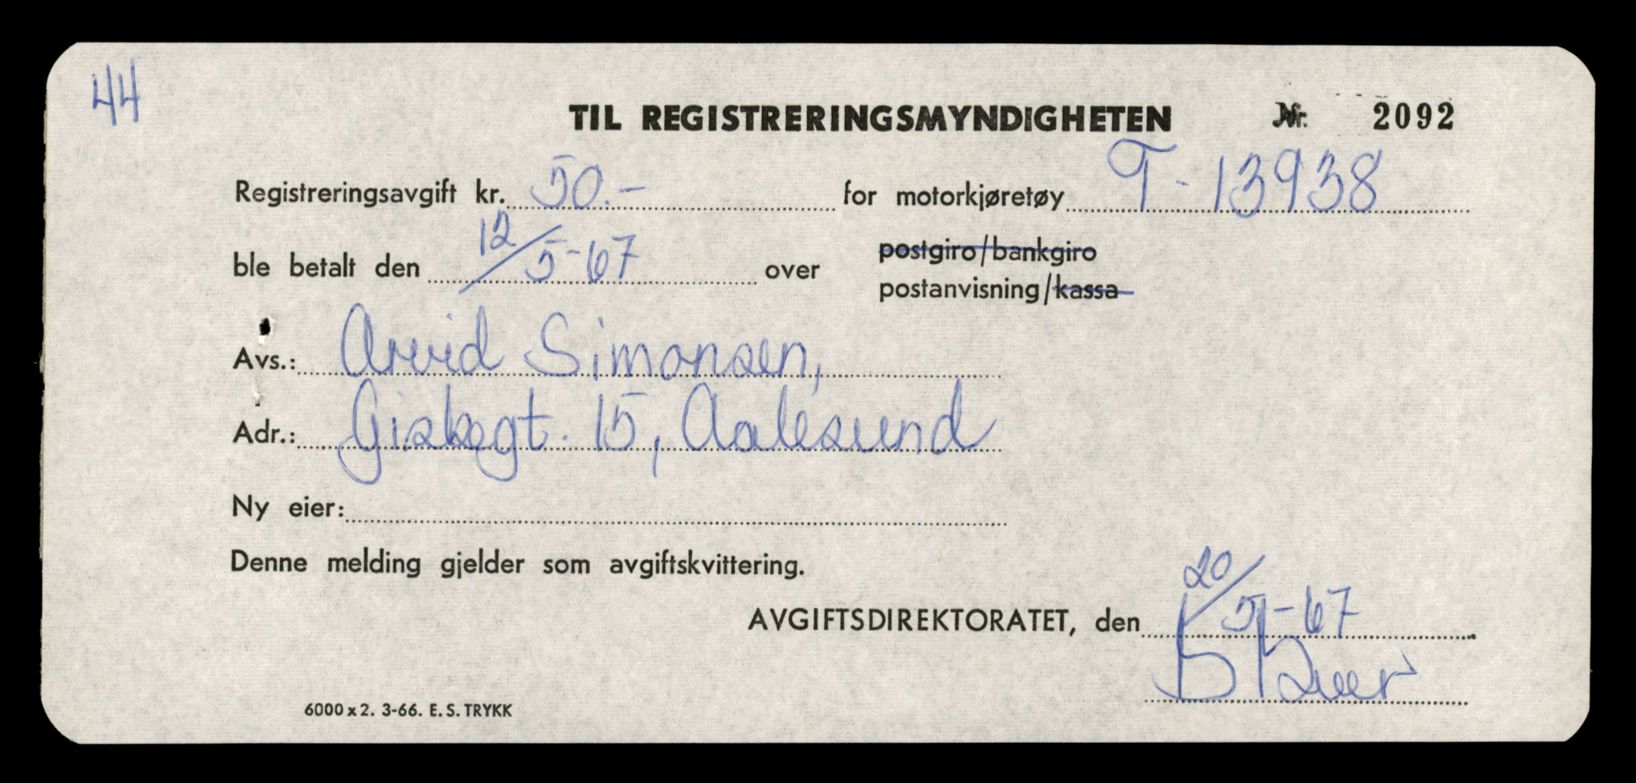 44
TIL REGISTRERINGSMYNDIGHETEN Nr. 2092
Registreringsavgift kr. 50.- for motorkjøretøy T-13938
ble betalt den 12/5-67 over postgiro/bankgiro
postanvisning/kassa
Avs.: Arvid Simonsen,
Adr.: Giskegt. 15, Aalesund
Ny eier:
Denne melding gjelder som avgiftskvittering.
AVGIFTSDIREKTORATET, den 20/5-67
6000 x 2. 3-66. E. S. TRYKK